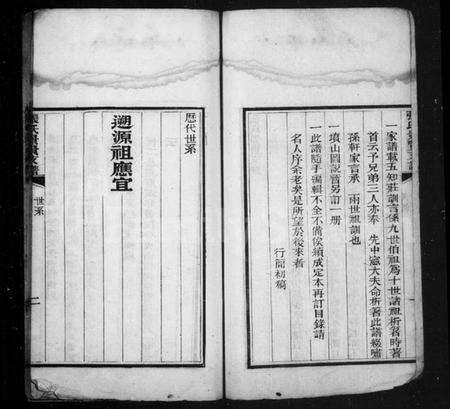 一家譜載五知莊訓言係九世伯祖爲十世諸祖析箸時著
首云予兄弟三人亦奉 先中憲大夫命析箸此譜綴嘯
孫軒家言承 兩世祖訓也
一墳山圖説當另訂一册
一此譜隨手編輯不全不備俟續成定本再訂目録請
名人序余老矣是所望於後來者
行簡初稿
歷代世系
遡源祖應宜
世系
二